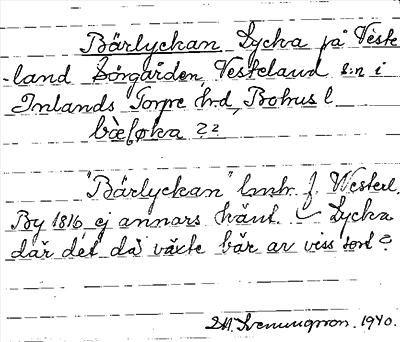 Bärlyckan Lycka på Väste
-land Sörgården, Vesteland s:n i
Inlands Torpe h:d, Bohus l
bæ̀ḷøka ??
"Bärlyckan" lmtr. f. Westerl.
By 1816, ej annars känt. Lycka
där det då växte bär av viss sort?
Svenungsson. 1940.